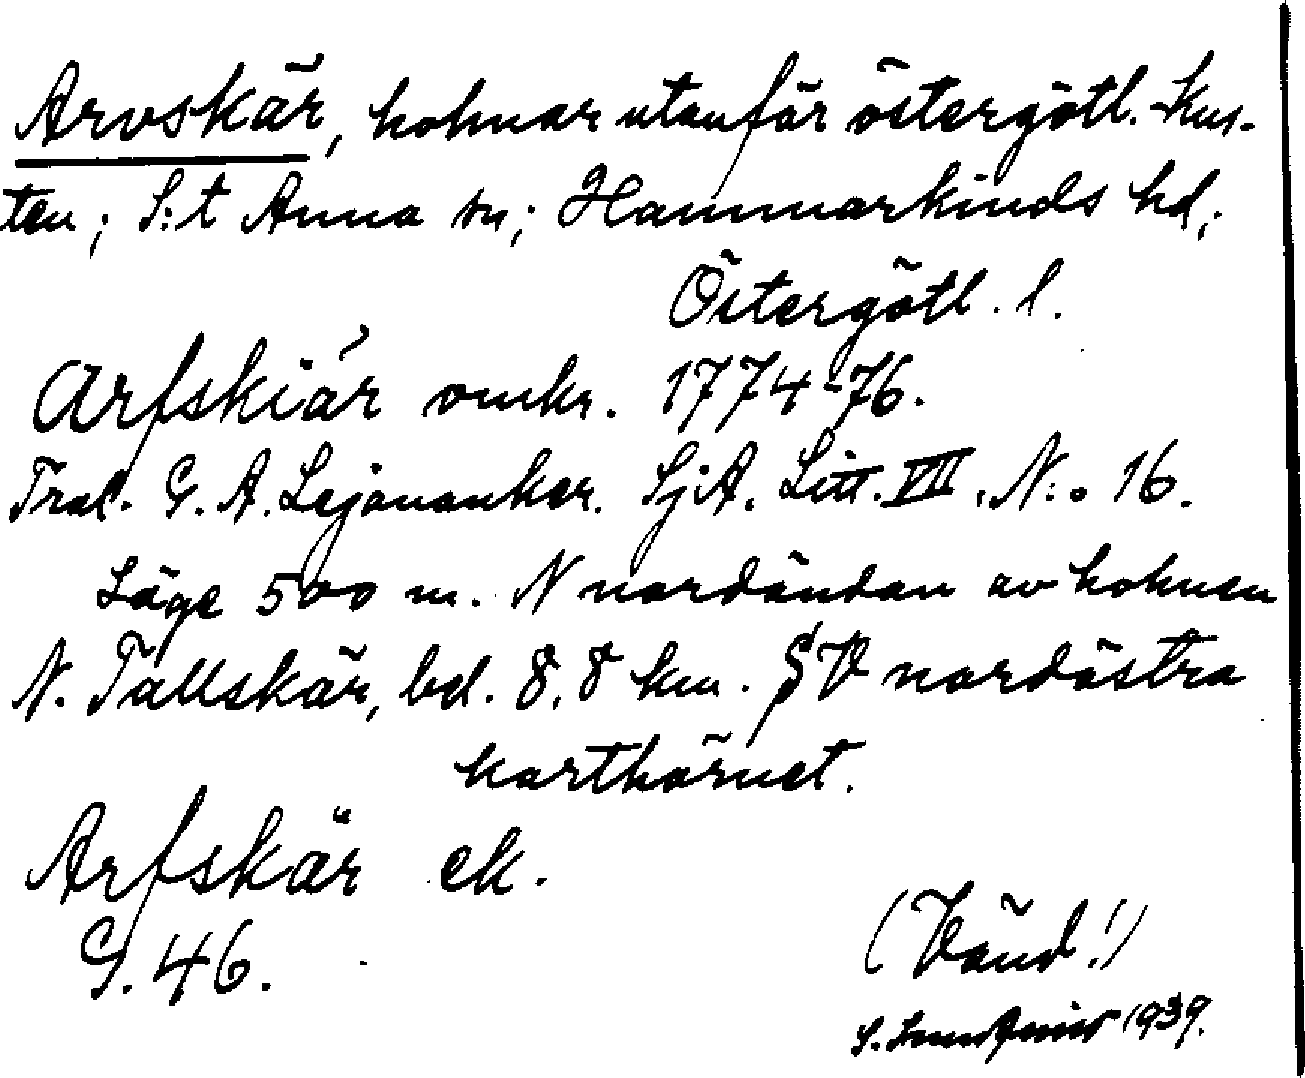 Arvskär, holmar utanför östergötl. kus-
ten; S:t Anna sn; Hammarkinds hd;
Östergötl. l.
Arfskiär omkr. 1774-76.
Tral. G. A. Lejonanker. SjA. Litt. VII. N:o 16.
Läge 500 m. N nordändan av holmen
N. Tallskär, bd. 8,8 km. SV nordöstra
karthörnet.
Arfskär ek.
G. 46.
(Vänd!)
S. 1939.